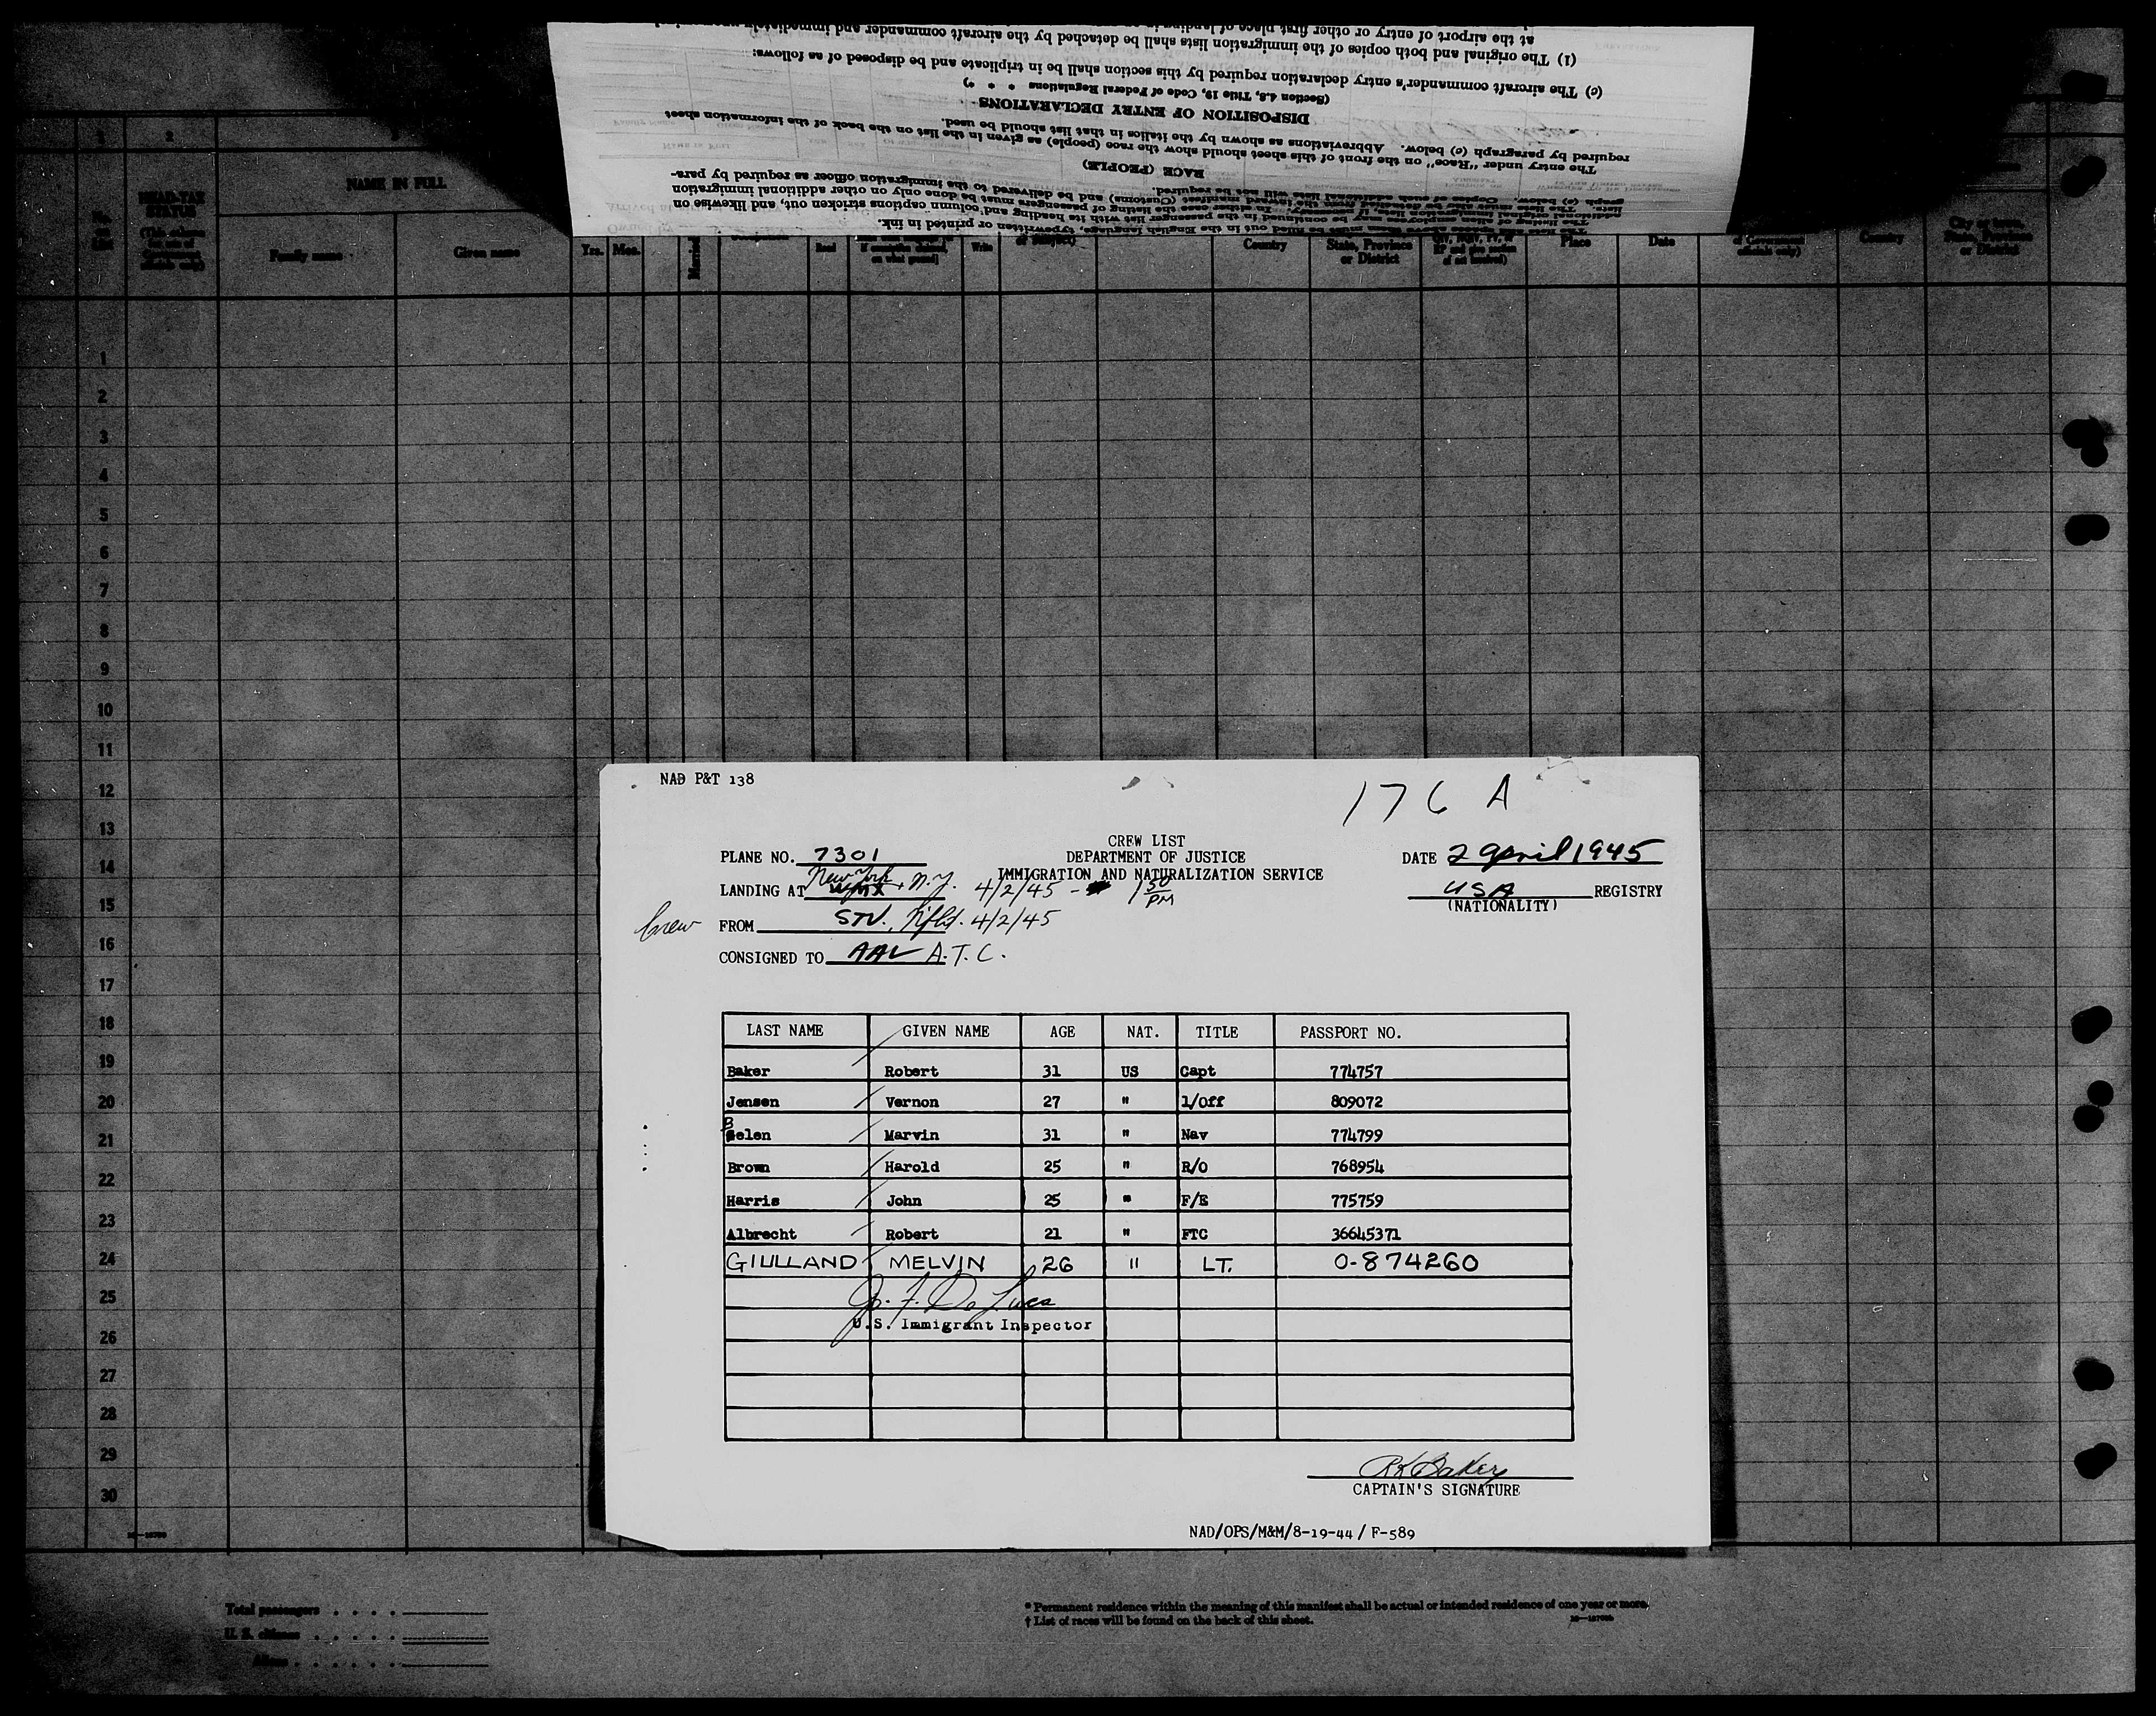 at the airport of entry or other first place of landing
(1) The original and both copies of the immigration lists shall be detached by the aircraft commander and immediately
(c) The aircraft commander's entry declaration required by this section shall be in triplicate and be disposed of as follows:
(Section 4.8, Title 19, Code of Federal Regulations * * *)
DISPOSITION OF ENTRY DECLARATIONS
required by paragraph (c) below. Abbreviations as shown by the italics in that list should be used.
The entry under "Race" on the front of this sheet should show the race (people) as given in the list on the back of the information sheet
RACE (PEOPLE)
1 2
HEAD-TAX STATUS
(This column for use of Government officials only)
NAME IN FULL
No. on List
Family name Given name Yrs. Mos. Married Read Write Country State, Province or District Place Date Country
City or town, State, Province or District
1
2
3
4
5
6
7
8
9
10
11
12
13
14
15
16
17
18
19
20
21
22
23
24
25
26
27
28
29
30
NAD P&T 138
176 A
CREW LIST
PLANE NO. 7301 DEPARTMENT OF JUSTICE DATE 2 April 1945
IMMIGRATION AND NATURALIZATION SERVICE
LANDING AT New York, N.Y. 4/2/45 - 1 50 PM USA REGISTRY
(NATIONALITY)
Crew FROM STV., Nfld. 4/2/45
CONSIGNED TO AAL A.T.C.
LAST NAME GIVEN NAME AGE NAT. TITLE PASSPORT NO.
Baker Robert 31 US Capt 774757
Jensen Vernon 27 " 1/Off 809072
Belen Marvin 31 " Nav 774799
Brown Harold 25 " R/O 768954
Harris John 25 " F/E 775759
Albrecht Robert 21 " FTC 36645371
GIULLAND MELVIN 26 " LT. O-874260
J. F. De Luca
U.S. Immigrant Inspector
RK Baker
CAPTAIN'S SIGNATURE
NAD/OPS/M&M/8-19-44/F-589
Total passengers . . . .
U. S. citizens . . . . .
Aliens . . . . . .
* Permanent residence within the meaning of this manifest shall be actual or intended residence of one year or more.
† List of races will be found on the back of this sheet.